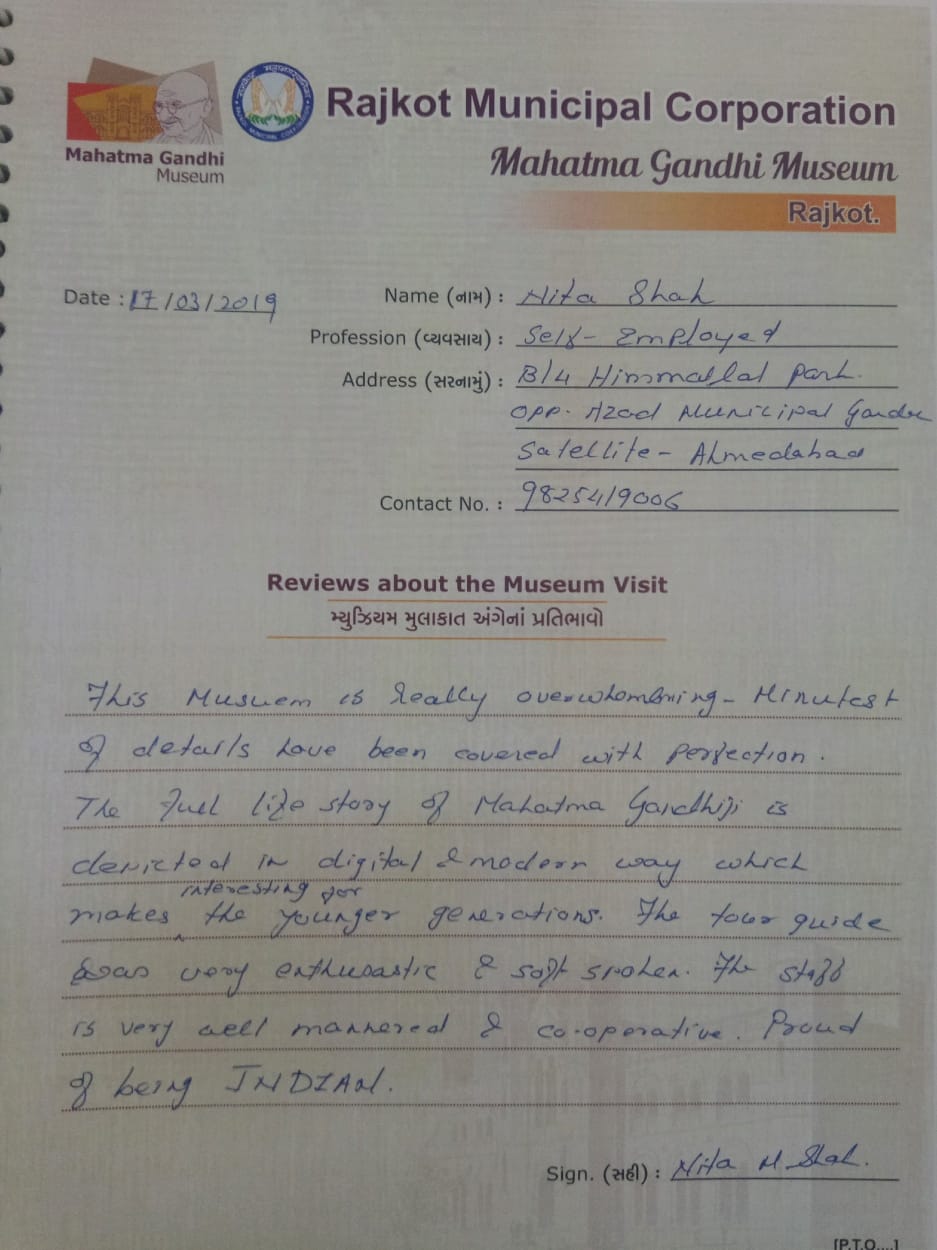 Mahatma Gandhi
Museum
Rajkot Municipal Corporation
Mahatma Gandhi Museum
Rajkot.
Date : 17/03/2019
Name (નામ) : Nita Shah
Profession (વ્યવસાય) : Self- Employed
Address (સરનામું) : B/4 Himmatlal park.
opp. Azad Municipal Garden
Satellite - Ahmedabad
Contact No. : 9825419006
Reviews about the Museum Visit
મ્યુઝિયમ મુલાકાત અંગેનાં પ્રતિભાવો
This Musuem is really overwhombning - Minutest
of details have been covered with perfection.
The full life story of Mahatma Gandhiji is
depicted in digital & modern way which
interesting for
makes the younger generations. The tour guide
was very enthusastic & soft spoken. The staff
is very well mannered & co-operative. Proud
of being INDIAN.
Sign. (સહી) : Nita M Shah.
[P.T.O....]